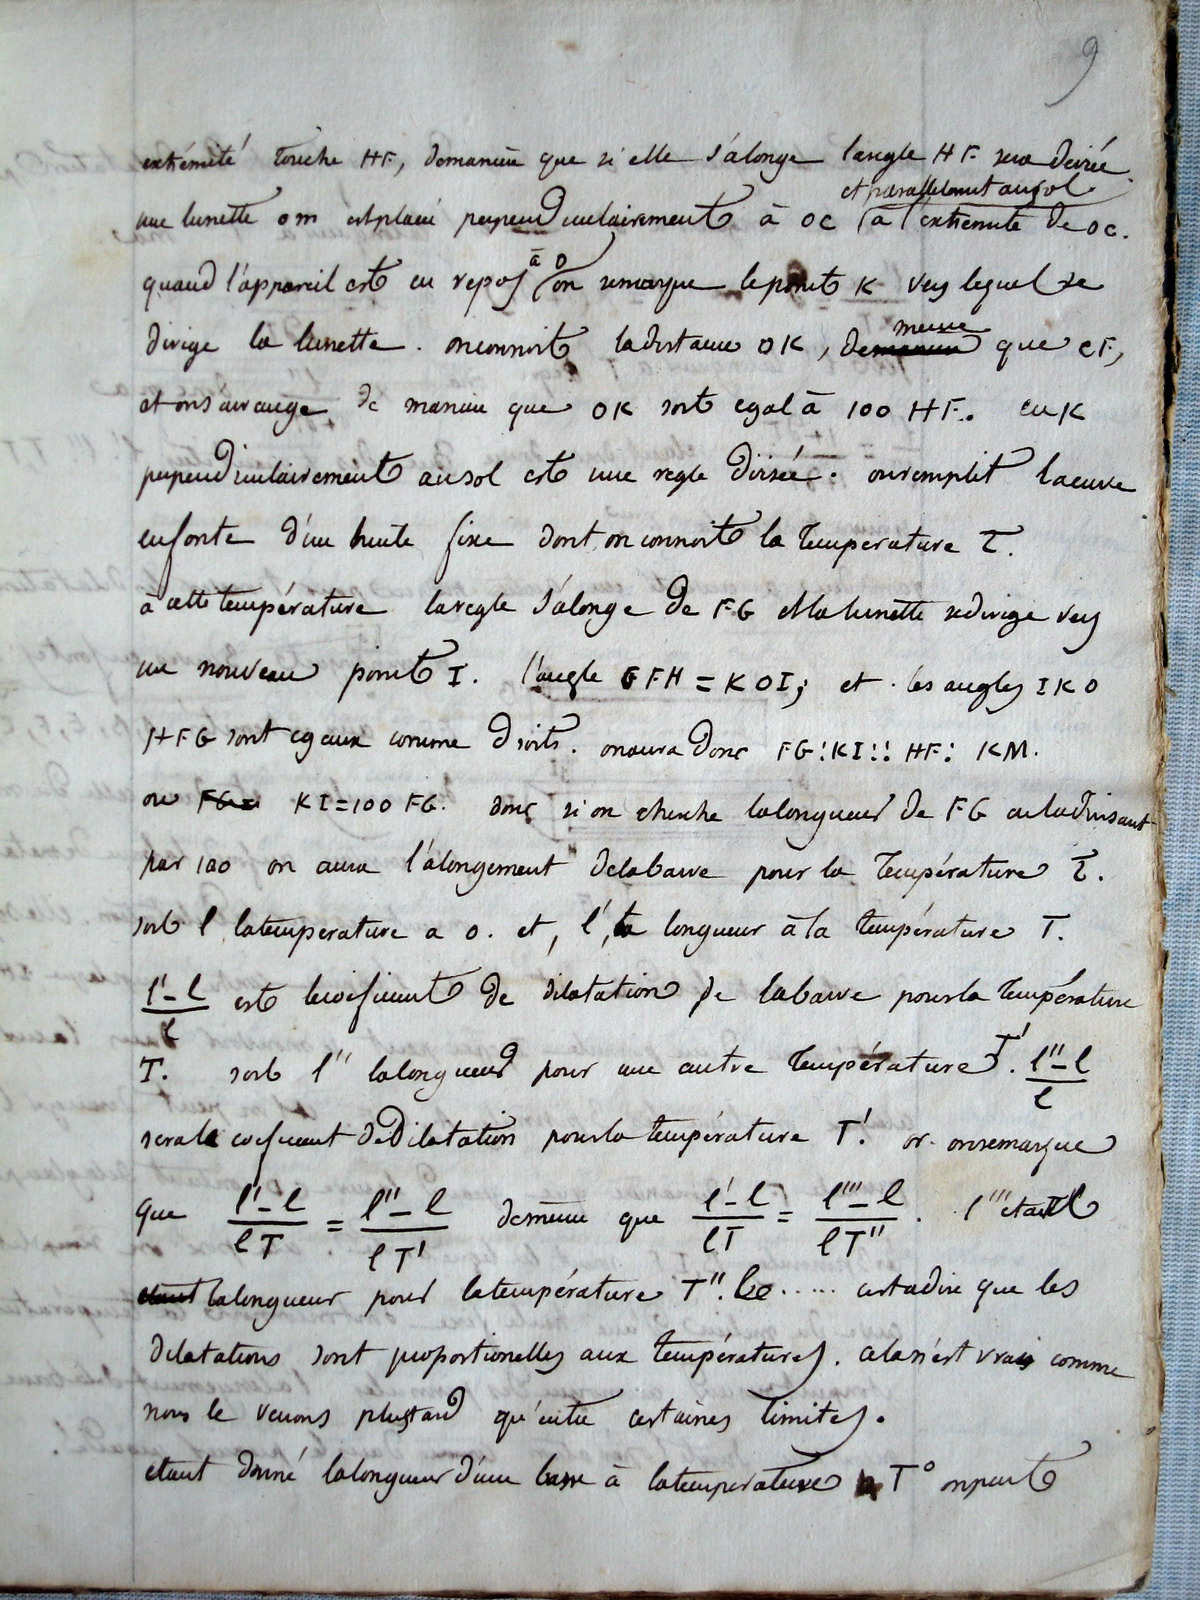 9
extrémité touche HF, demaniere que si elle s'alonge l'angle HF sera
et parallelement au sol
une lunette om est placée perpendiculairement à OC à l'extremité de OC.
quand l'appareil est en repos à 0 on remarque le point K vers lequel se
dirige la lunette. on connoit la distance OK, de meme que CF,
et on s'arrange de maniere que OK soit egal à 100 HF. en K
perpendiculairement au sol est une regle divisée. on remplit la cuve
en fonte d'une huile fixe dont on connoit la Temperature T.
à cette température la regle s'alonge de FG et la lunette se dirige vers
un nouveau point I. l'angle GFH = KOI; et les angles IKO
HFG sont egaux comme droits. on aura donc FG:KI:: HF: KM.
ou FG= KI=100 FG. donc si on cherche la longueur de FG en la divisant
par 100 on aura l'alongement de la barre pour la Température T.
soit l la temperature a 0. et, l', la longueur à la température T.
l'-l/l est le coeficient de dilatation de la barre pour la Température
T. soit l'' la longueur pour une autre Température T'. l''-l/l
sera le coeficient de Dilatation pour la température T'. or on remarque
que l'-l/lT = l''-l/lT' de même que l'-l/lT = l'''-l/lT''. l''' etant
etant la longueur pour la température T''. ..... c'est a dire que les
dilatations sont proportionelles aux températures. cela n'est vrai comme
nous le verrons plus tard qu'entre certaines limites.
etant donné la longueur d'une barre à la temperature T° on peut